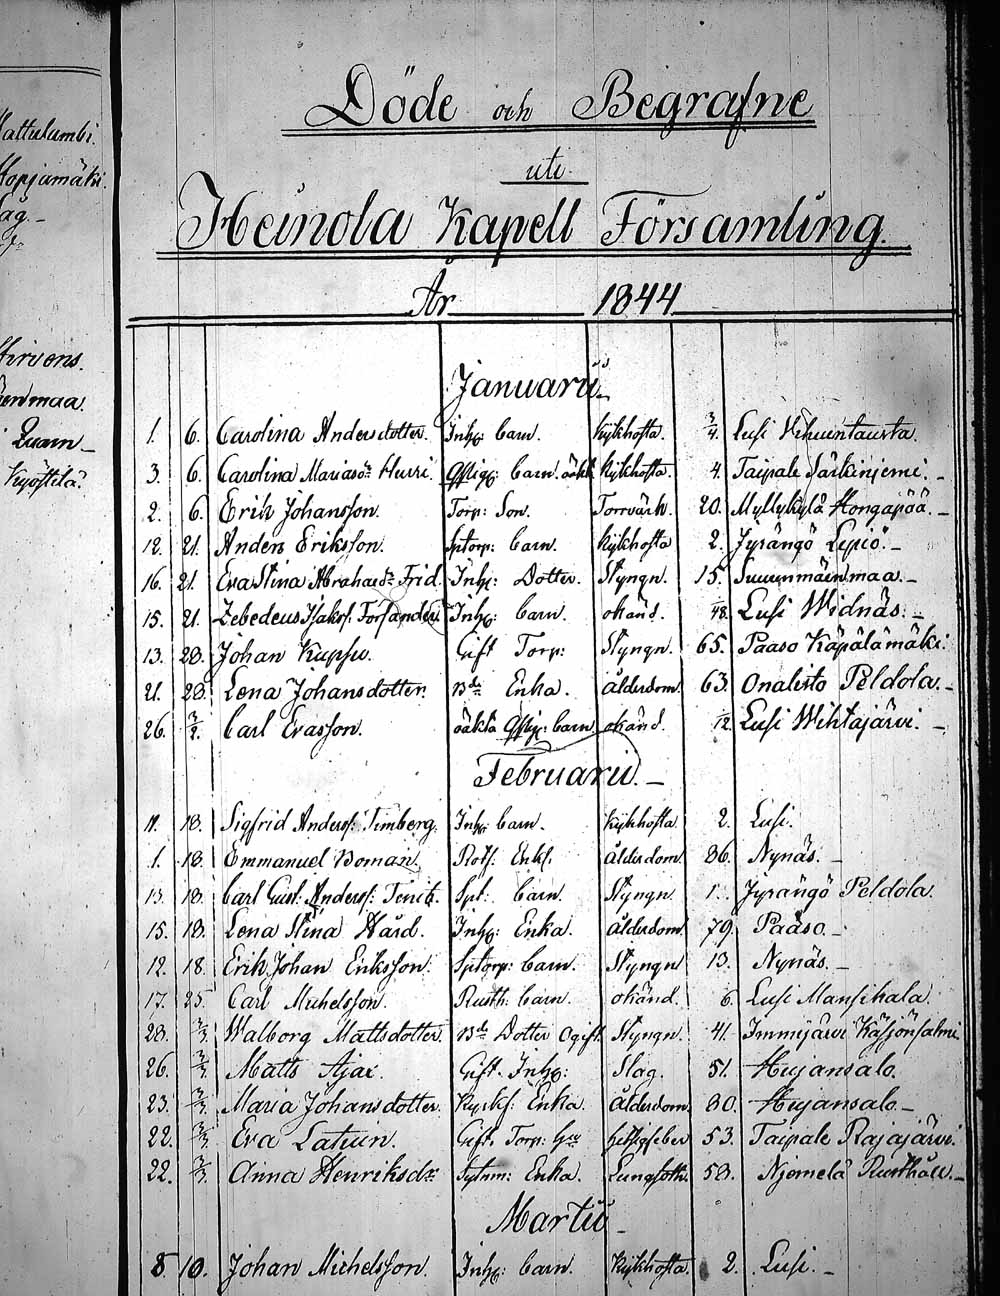 attulambi.
Hopjamäki.
Hirvens.
Kyöstilä.
Döde och Begrafne
uti
Heinola Kapell Församling.
År 1844
Januarii
1. 6. Carolina Andersdotter. Inh: barn. Kikhosta. 3/4. Lusi
3. 6. Carolina Mariasdr Hurri. barn oäkta Kikhosta. 4. Taipale Särkinjemi.
2. 6. Erik Johansson. Torp: Son. Torrvärk. 20. Myllykylä Hongapää.
12. 21. Anders Eriksson. Sptorp: barn. Kikhosta 2. Jyrängö Lepiö.
16. 21. Eva Stina Abrahamsdr Frid. Inh: Dotter. Styngn. 15. Suurenmäinmaa.
15. 21. Zebedeus Isakss: Forsander. Inh: barn. okänd. /48. Lusi Widnäs.
13. 28. Johan Kuppu. Gift Torp: Styngn. 65. Paaso Käpälämäki.
21. 28. Lena Johansdotter. Bde Enka. Ålderdom. 63. Onalisto Peldola.
26. 3/2. Carl Evasson. oäkta barn. okänd. /12. Lusi Wihtajärvi.
Februarii.
11. 18. Sigfrid Anderss: Timberg. Inh: barn. Kikhosta 2. Lusi.
1. 18. Emmanuel Boman. Rotf. Enkl. Ålderdom. 86. Nynäs.
13. 18. Carl Gust: Anderss: barn. Styngn. 1. Jyrängö Peldola.
15. 18. Lena Stina Hård. Inh: Enka. Ålderdom. 79. Paaso.
12. 18. Erik Johan Eriksson. Sptorp: barn. Styngn 13. Nynäs.
17. 25. Carl Michelsson. Rusth: barn. okänd. 6. Lusi Mansikala.
28. 3/3. Walborg Mattsdotter. Bde Dotter Ogift. Styngn. 41. Immijärvi
26. 3/3. Matts Ajax. Gift Inh: Slag. 51. Hujansalo.
23. 3/3. Maria Johansdotter. Enka. Ålderdom. 80. Hujansalo.
22. 3/3. Eva Latun. Gift. Torp: hetsigfeber 53. Taipale Rajajärvi.
22. 3/3. Anna Henriksdr Sytnin: Enka. Lungsotn. 58. Njemelä Rusthåll.
Martii
8. 10. Johan Michelsson. Inh: barn. Kikhosta. 2. Lusi.